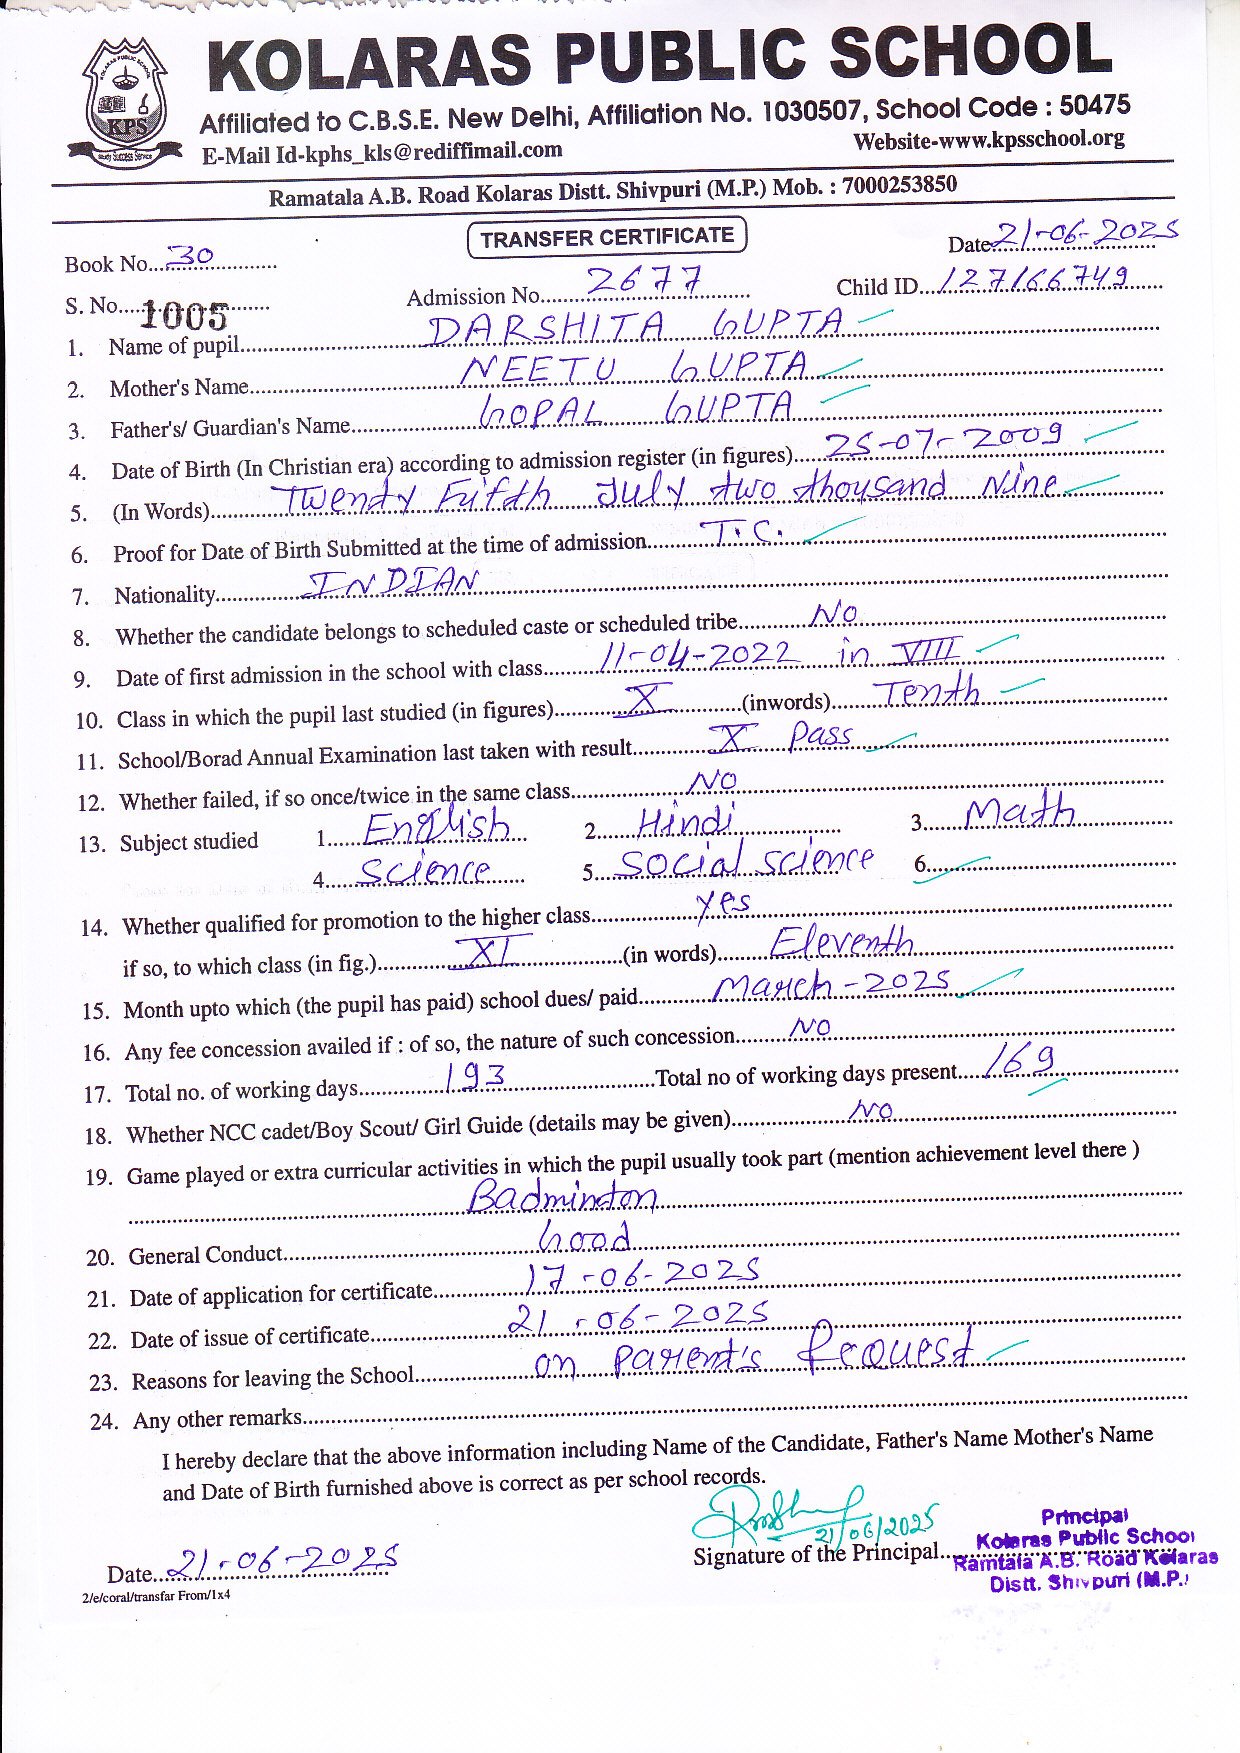 KOLARAS PUBLIC SCHOOL
Affiliated to C.B.S.E. New Delhi, Affiliation No. 1030507, School Code : 50475
E-Mail Id-kphs_kls@rediffimail.com Website-www.kpsschool.org
Ramatala A.B. Road Kolaras Distt. Shivpuri (M.P.) Mob. : 7000253850
KOLARAS PUBLIC SCHOOL
KPS
Study Success Service
TRANSFER CERTIFICATE
Book No. 30 Date 21-06-2025
S. No. 1005 Admission No. 2677 Child ID 127166749
1. Name of pupil DARSHITA GUPTA
2. Mother's Name NEETU GUPTA
3. Father's/ Guardian's Name GOPAL GUPTA
4. Date of Birth (In Christian era) according to admission register (in figures) 25-07-2009
5. (In Words) Twenty Fifth July two thousand Nine
6. Proof for Date of Birth Submitted at the time of admission T.C.
7. Nationality INDIAN
8. Whether the candidate belongs to scheduled caste or scheduled tribe No
9. Date of first admission in the school with class 11-04-2022 in VIII
10. Class in which the pupil last studied (in figures) X (inwords) Tenth
11. School/Borad Annual Examination last taken with result X Pass
12. Whether failed, if so once/twice in the same class NO
13. Subject studied 1. English 2. Hindi 3. Math
4. Science 5. Social science 6.
14. Whether qualified for promotion to the higher class yes
if so, to which class (in fig.) XI (in words) Eleventh
15. Month upto which (the pupil has paid) school dues/ paid March-2025
16. Any fee concession availed if : of so, the nature of such concession NO
17. Total no. of working days 193 Total no of working days present 169
18. Whether NCC cadet/Boy Scout/ Girl Guide (details may be given) NO
19. Game played or extra curricular activities in which the pupil usually took part (mention achievement level there )
Badminton
20. General Conduct Good
21. Date of application for certificate 17-06-2025
22. Date of issue of certificate 21-06-2025
23. Reasons for leaving the School on parent's Request
24. Any other remarks
I hereby declare that the above information including Name of the Candidate, Father's Name Mother's Name
and Date of Birth furnished above is correct as per school records.
21/06/2025
Date 21-06-2025 Signature of the Principal
Principal
Kolaras Public School
Ramtala A.B. Road Kolaras
Distt. Shivpuri (M.P.)
2/e/coral/transfar From/1x4